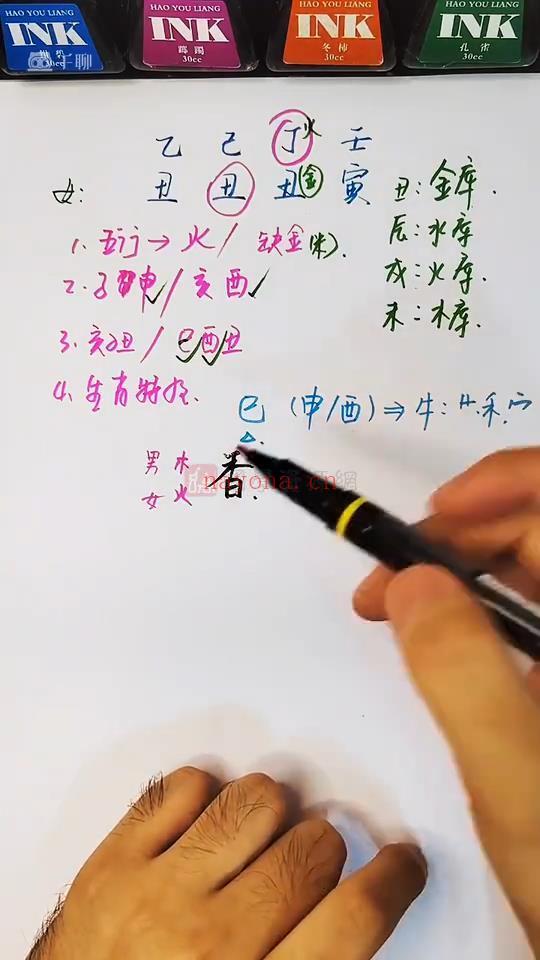 HAO YOU LIANG HAO YOU LIANG HAO YOU LIANG HAO YOU LIANG
INK INK INK INK
千聊 冬柿 孔雀
30cc 30cc 30cc 30cc
乙 己 丁火 壬
女: 丑 丑 丑金 寅 丑:金库.
1. 五行→火/缺金(米). 辰:水库
2. 子申/亥酉 戌:火库.
3. 亥子丑/巳酉丑 未:木库.
4. 生肖特性.
巳(申/酉)⇒牛:艹.禾.宀
男 水 香.
女 火
nayona.cn